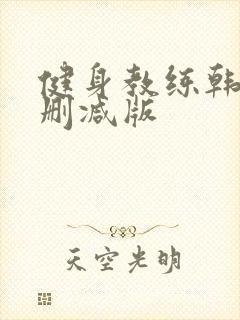 健身教练韩
删减版
天空光明